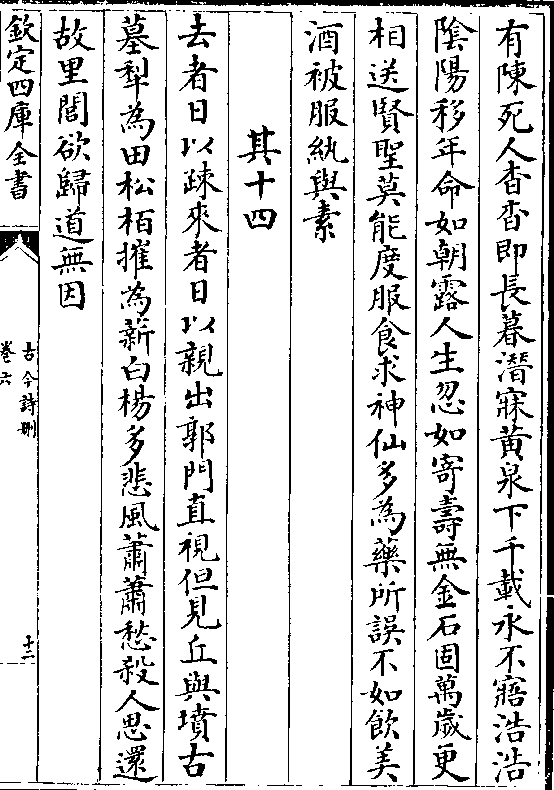 有陳死人杳杳即長暮潛寐黃泉下千載永不寤浩浩
陰陽移年命如朝露人生忽如寄壽無金石固萬歲更
相送賢聖莫能度服食求神仙多為藥所誤不如飲美
酒被服紈與素
其十四
去者日以疎來者日以親出郭門直視但見丘與墳古
墓犁為田松栢摧為薪白楊多悲風蕭蕭愁殺人思還
故里閭欲歸道無因
欽定四庫全書
古今詩刪
卷六
十二